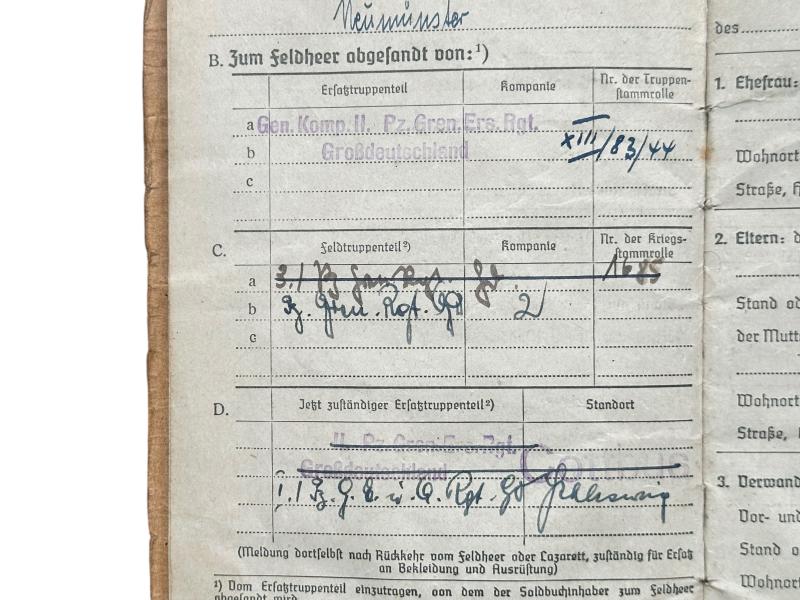 Neumünster
B. Zum Feldheer abgesandt von:¹)
Ersatztruppenteil Kompanie Nr. der Truppen-
stammrolle
a Gen. Komp. II. Pz. Gren. Ers. Rgt.
b Großdeutschland XIII/83/44
c
C. Feldtruppenteil²) Kompanie Nr. der Kriegs-
stammrolle
a 3./ Pz Gren. Rgt. Gd 1685
b Pz. Gren. Rgt. GD 2
c
D. Jetzt zuständiger Ersatztruppenteil²) Standort
II. Pz. Gren. Ers. Rgt.
Großdeutschland Cottbus
I./ Pz. G. E. u. A. Rgt. GD Schleswig
(Meldung dortselbst nach Rückkehr vom Feldheer oder Lazarett, zuständig für Ersatz
an Bekleidung und Ausrüstung)
¹) Vom Ersatztruppenteil einzutragen, von dem der Soldbuchinhaber zum Feldheer
abgesandt wird.
des
1. Ehefrau:
Wohnort
Straße,
2. Eltern:
Stand
der
Wohnort
Straße,
3.
Vor- und
Stand
Wohnort